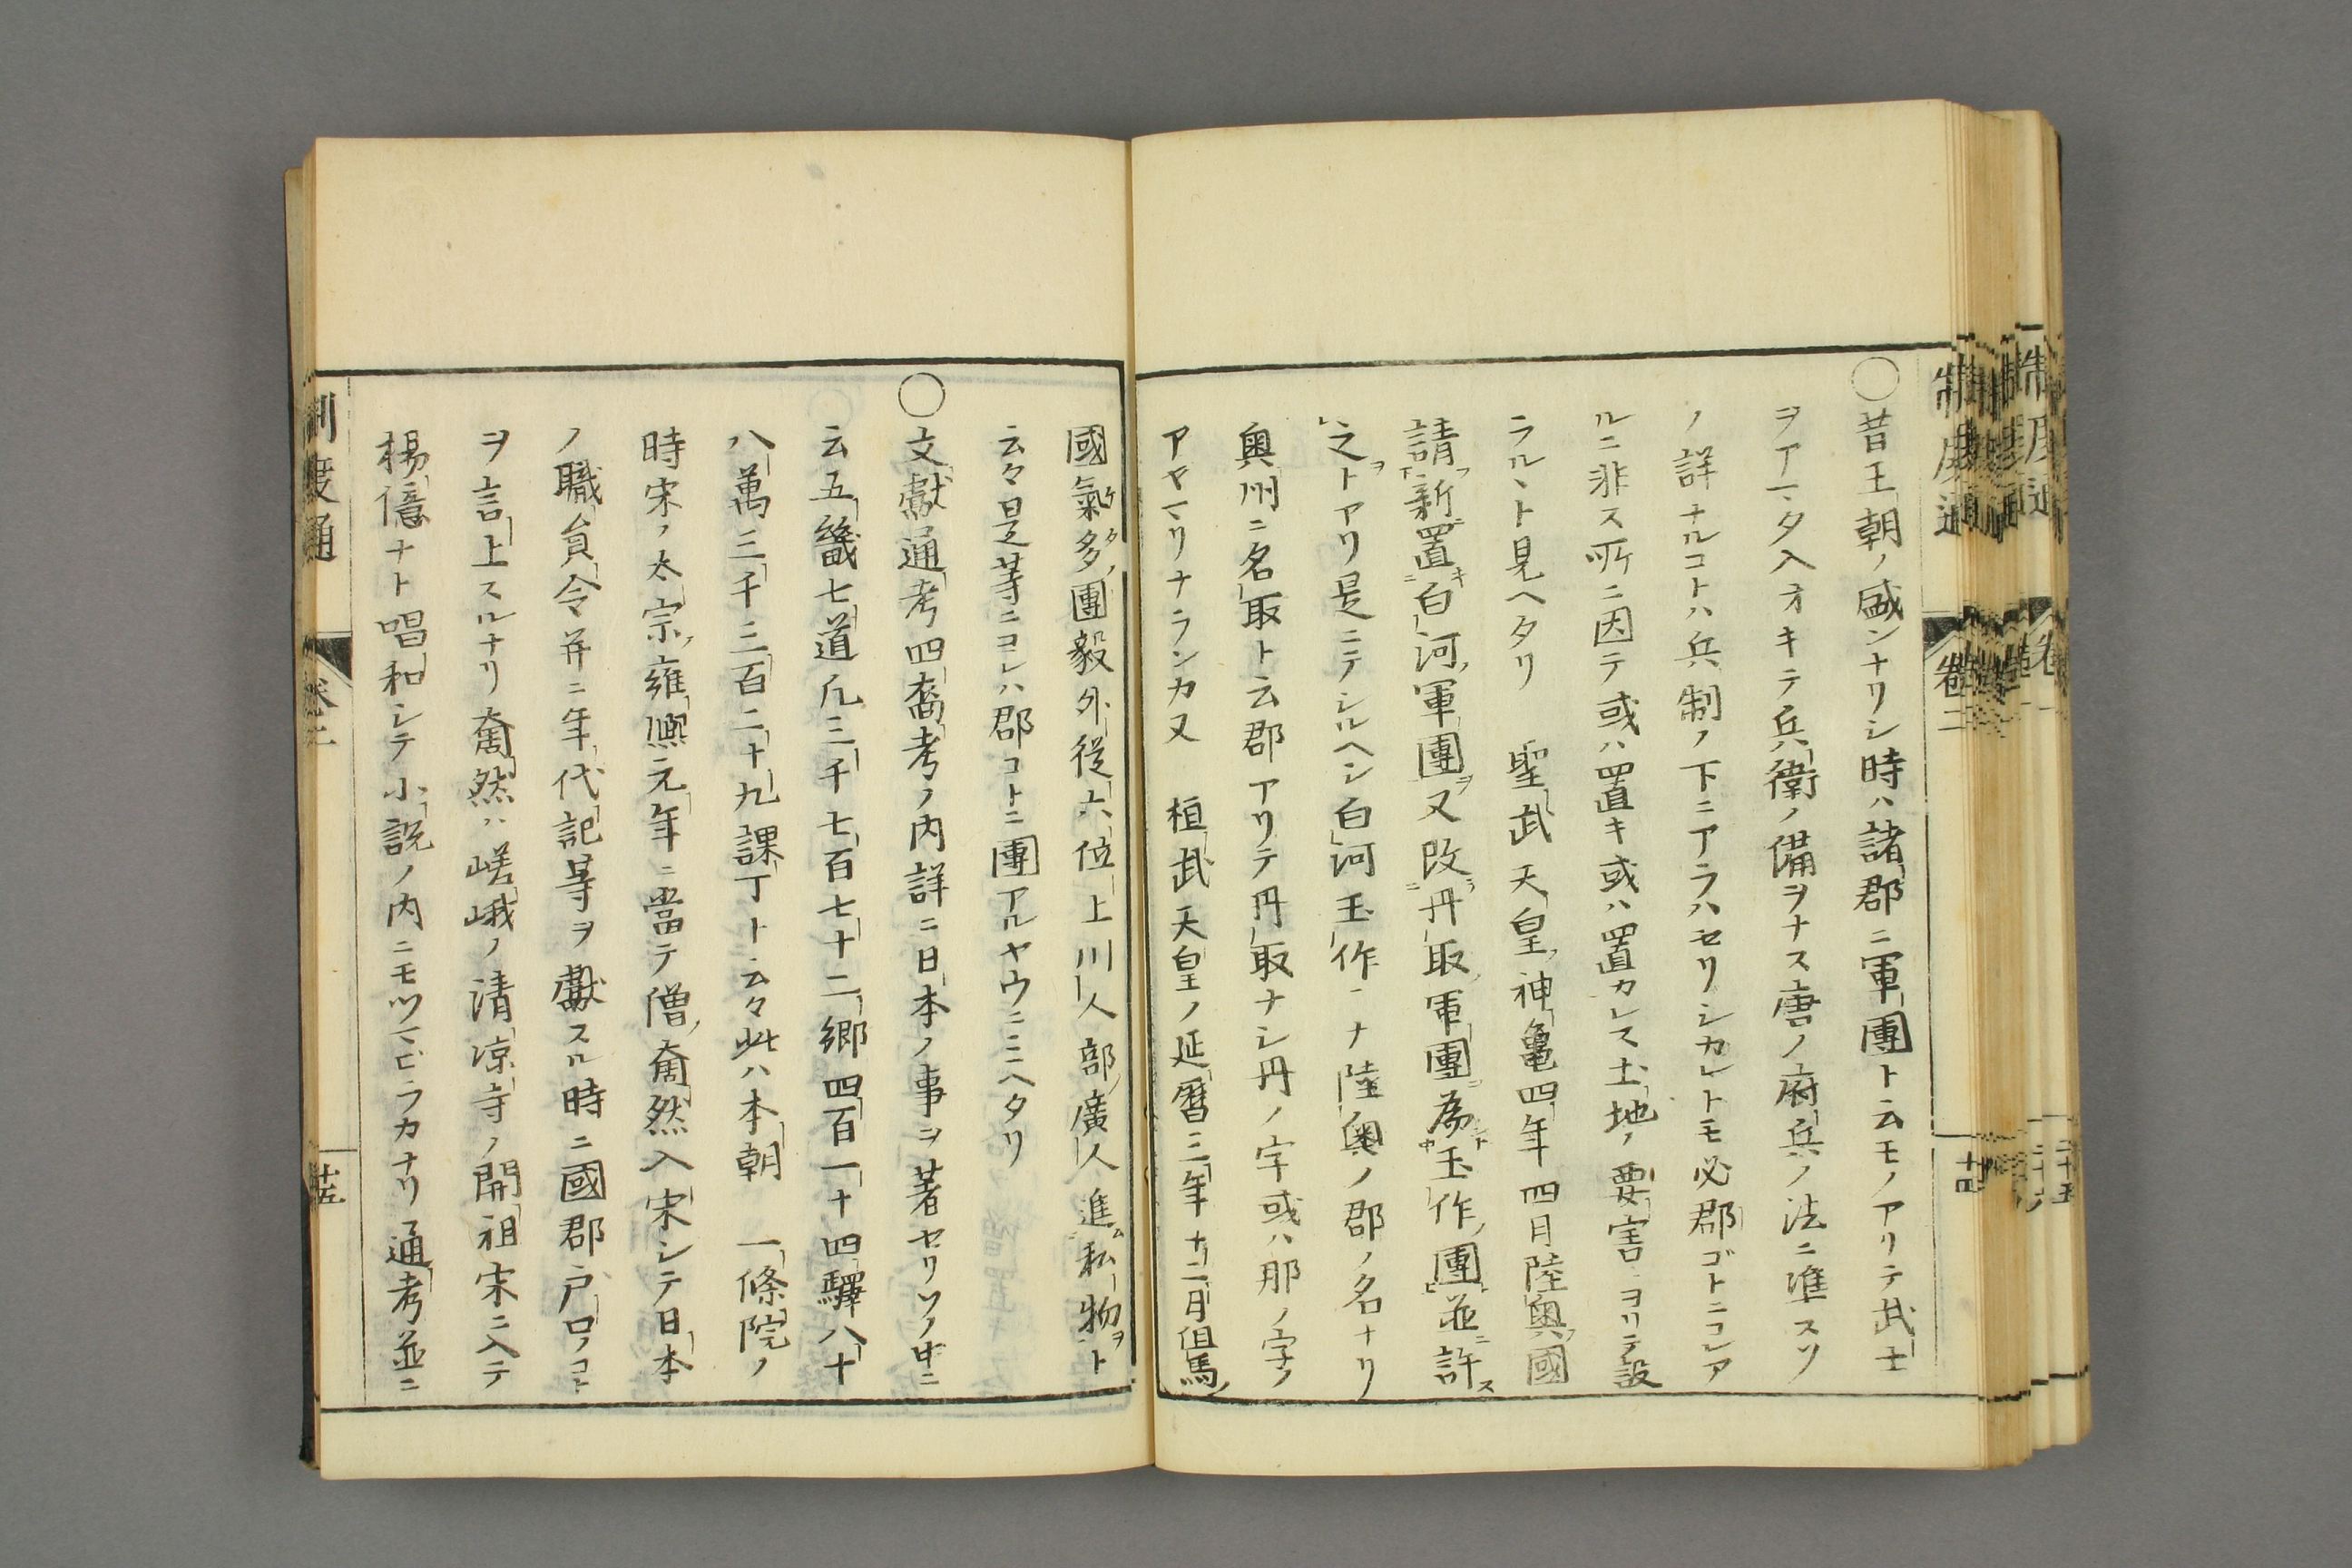 〇昔王朝ノ盛ンナリシ時ハ諸郡ニ軍團ト云モノアリテ武士
ヲアマタ入オキテ兵衛ノ備ヲナス唐ノ府兵ノ法ニ準スソ
ノ詳ナルコトハ兵制ノ下ニアラハセリシカレトモ必郡ゴトニコレア
ルニ非ス所ニ因テ或ハ置キ或ハ置カレス土地ノ要害ヨリテ設
ラルヽト見ヘタリ 聖武天皇神亀四年四月陸奥國
請新置白河軍團又改丹取軍團為玉作團並許
之トアリ是ニテシルヘシ白河玉作ミナ陸奥ノ郡ノ名ナリ
奥州ニ名取ト云郡アリテ丹取ナシ丹ノ字或ハ那ノ字ノ
アヤマリナランカ又 桓武天皇ノ延暦三年十二月但馬ノ
國氣多團毅外從六位上川人部廣人進私物ヲト
云々是等ニヨレハ郡コトニ團アルヤウニミヘタリ
〇文獻通考四裔考ノ内詳ニ日本ノ事ヲ著セリソノ中ニ
云五畿七道凡三千七百七十二郷四百一十四驛八十
八萬三千三百二十九課丁ト云々此ハ本朝 一條院ノ
時宋ノ太宗雍熈元年ニ當テ僧奝然入宋シテ日本
ノ職員令并ニ年代記等ヲ獻スル時ニ國郡戸口ノコト
ヲ言上スルナリ奝然ハ嵯峨ノ清凉寺ノ開祖宋ニ入テ
楊億ナト唱和シテ小説ノ内ニモツマビラカナリ通考並ニ
制度通
卷二
十四
制度通
卷二
十五